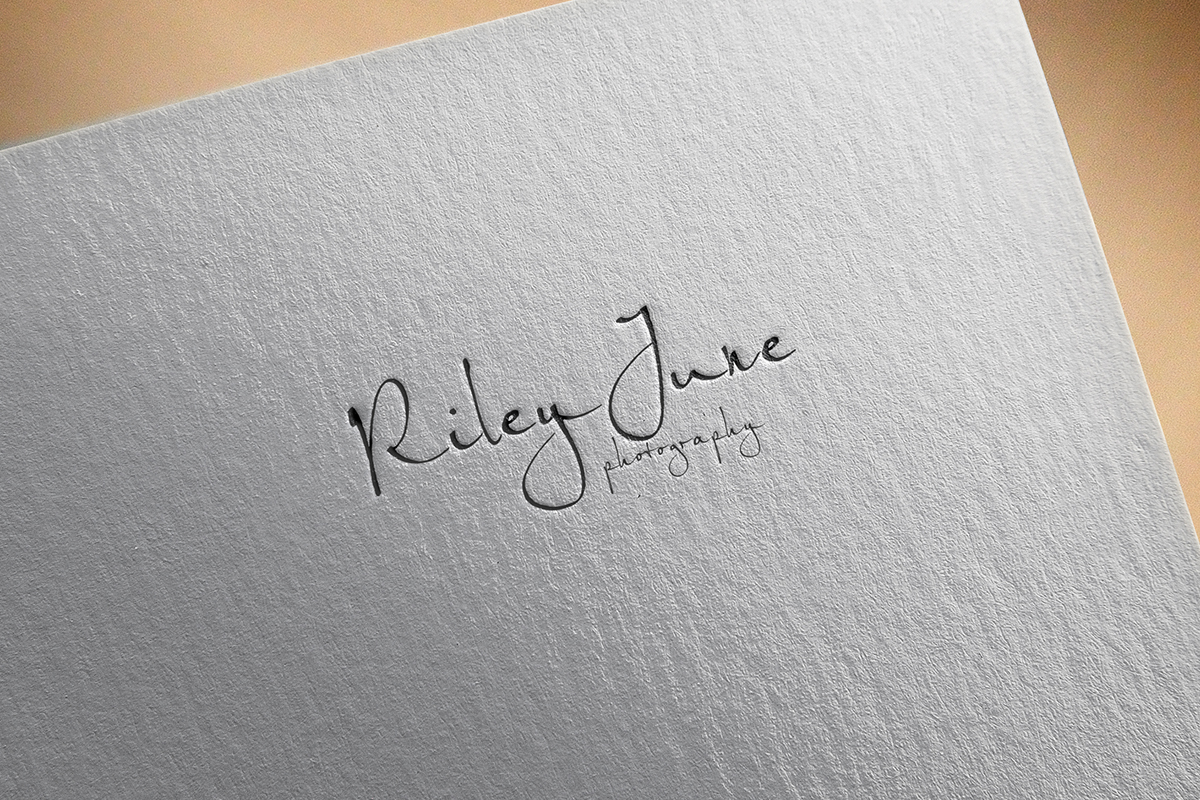 Riley June
photography